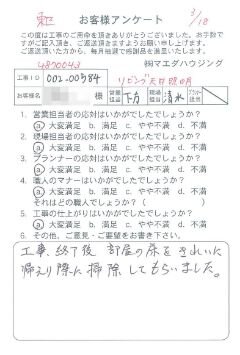 お客様アンケート 3/18
この度は工事のご用命を頂きありがとうございました。お手数で
すがご記入頂き、ご返送頂きますようお願い申し上げます。
ご返送頂いた方から、毎月抽選で感謝品を進呈しています。
4800043 ㈱マエダハウジング
工事ID 002-00984 リビング天井照明
お客様名 様 営業担当 下方 現場担当 清水
1. 営業担当者の応対はいかがでしたでしょうか?
ⓐ大変満足 b. 満足 c. やや不満 d. 不満
2. 現場担当者の応対はいかがでしたでしょうか?
ⓐ大変満足 b. 満足 c. やや不満 d. 不満
3. プランナーの応対はいかがでしたでしょうか?
a. 大変満足 b. 満足 c. やや不満 d. 不満
4. 職人のマナーはいかがでしたでしょうか?
ⓐ大変満足 b. 満足 c. やや不満 d. 不満
それはどの職人でしょうか?( )
5. 工事の仕上がりはいかがでしたでしょうか?
ⓐ大変満足 b. 満足 c. やや不満 d. 不満
6. その他、ご意見・ご要望をお書き下さい。
工事、終了後 部屋の床をきれいに
帰える際に掃除してもらいました。